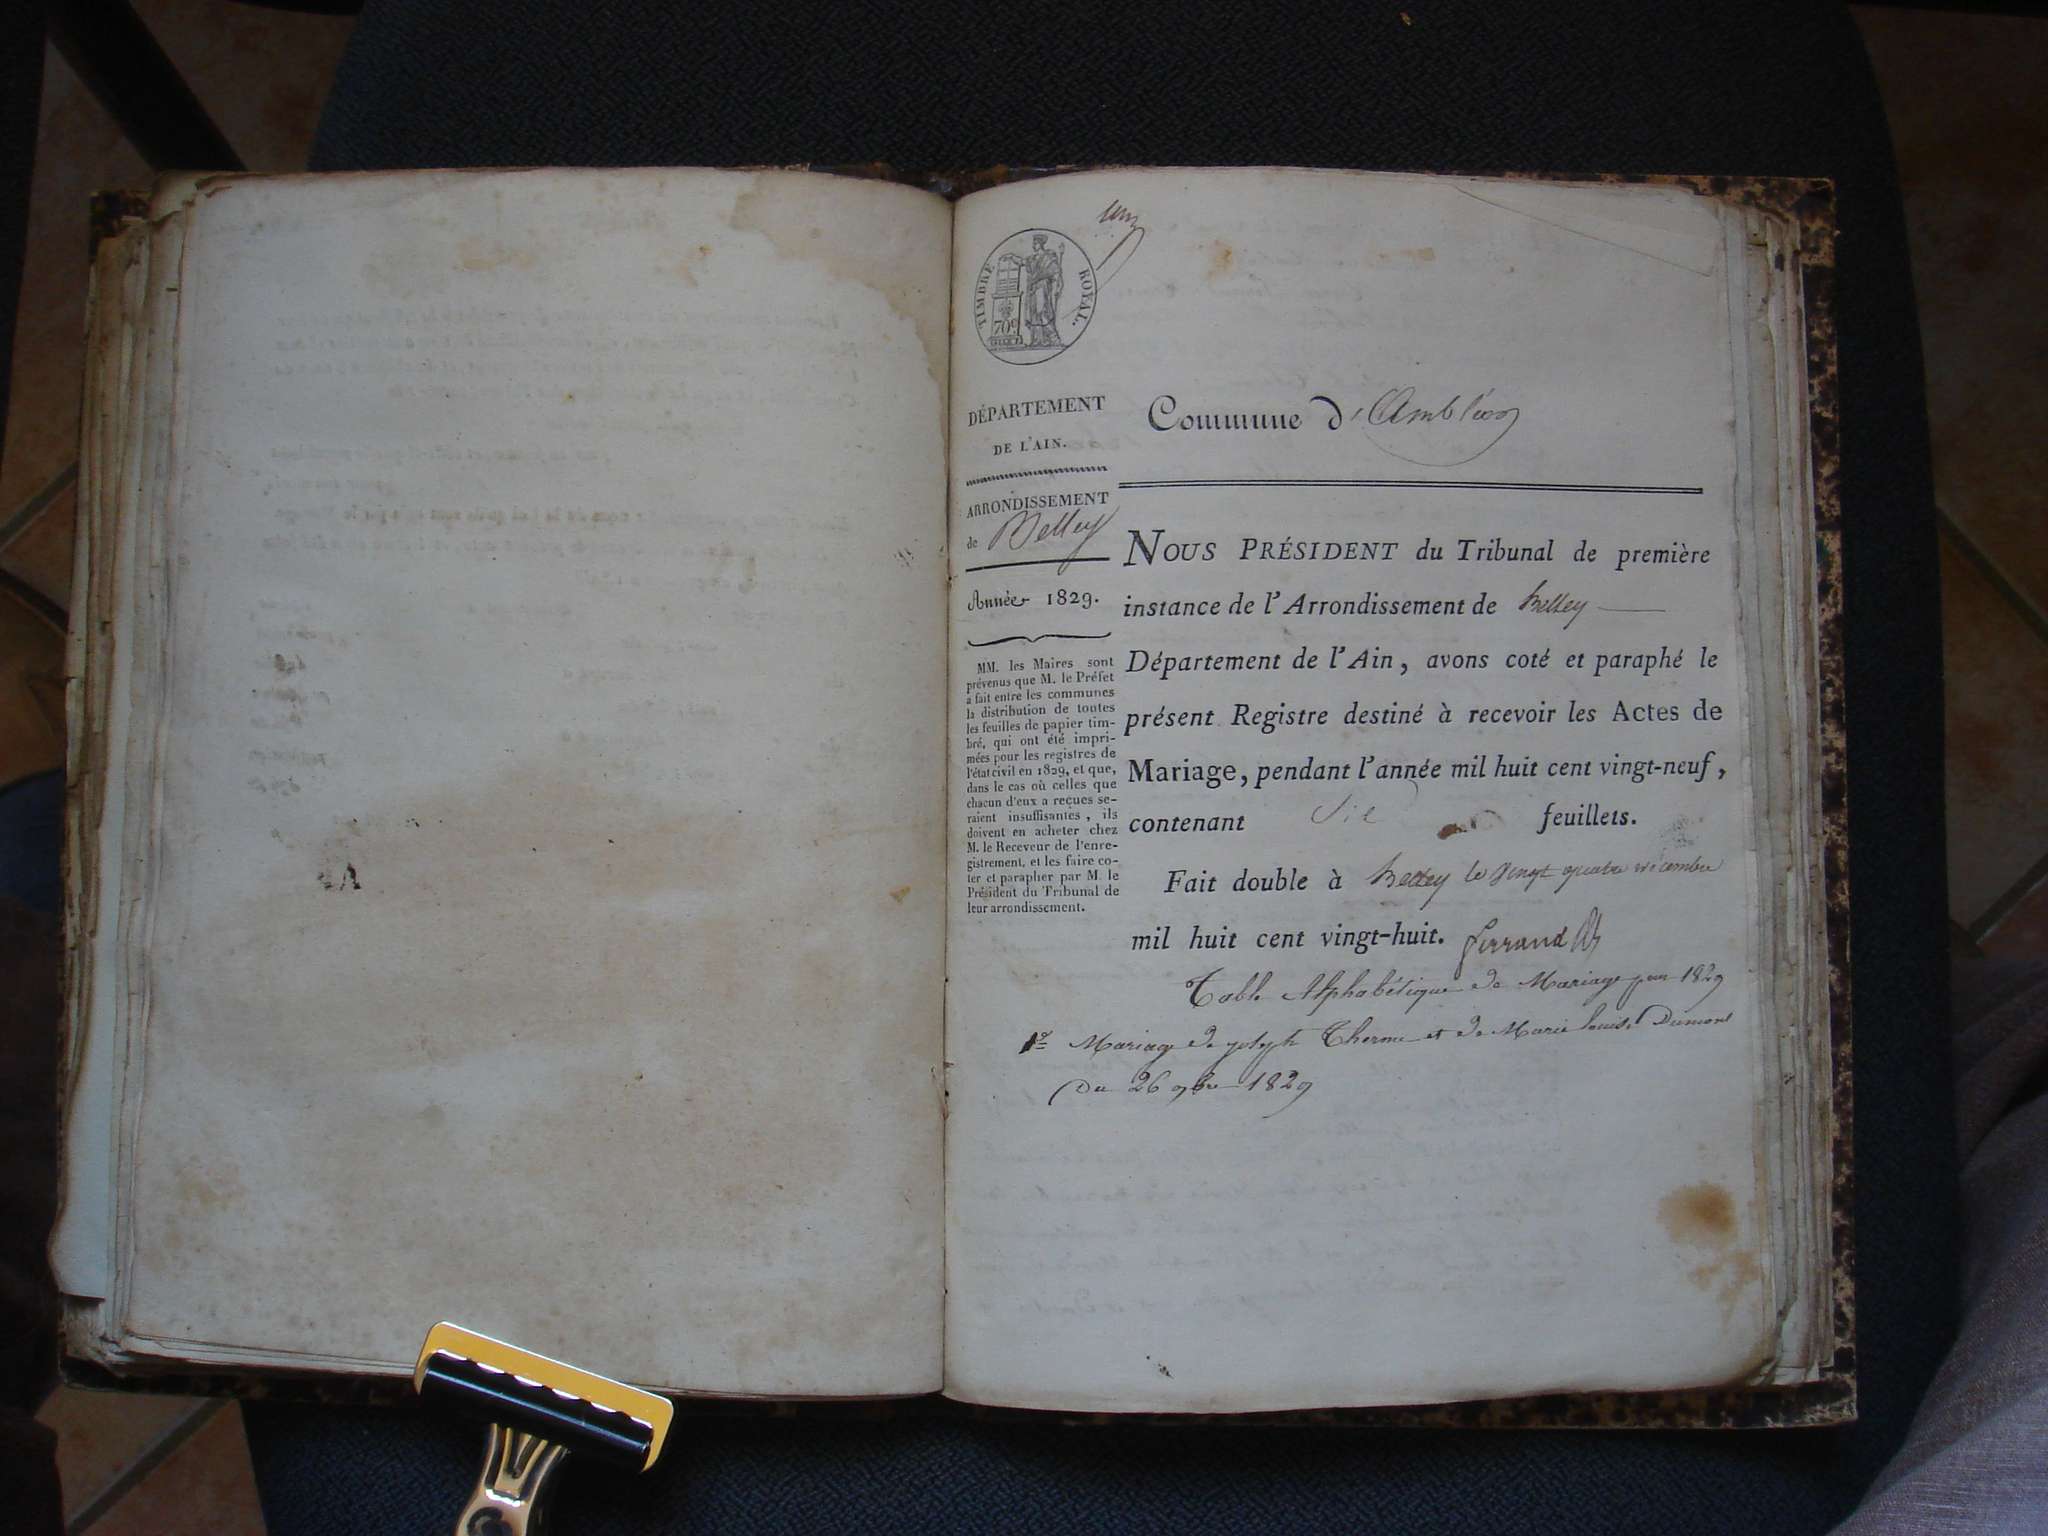 un
TIMBRE ROYAL.
70c
DÉPARTEMENT
DE L'AIN.
ARRONDISSEMENT
de Belley
Année 1829.
MM. les Maires sont
prévenus que M. le Préfet
a fait entre les communes
la distribution de toutes
les feuilles de papier tim-
bré, qui ont été impri-
mées pour les registres de
l'état civil en 1829, et que,
dans le cas où celles que
chacun d'eux a reçues se-
raient insuffisantes, ils
doivent en acheter chez
M. le Receveur de l'enre-
gistrement, et les faire co-
ter et parapher par M. le
Président du Tribunal de
leur arrondissement.
Commune d'Ambléon
NOUS PRÉSIDENT du Tribunal de première
instance de l'Arrondissement de Belley
Département de l'Ain, avons coté et paraphé le
présent Registre destiné à recevoir les Actes de
Mariage, pendant l'année mil huit cent vingt-neuf,
contenant six feuillets.
Fait double à Belley le vingt quatre décembre
mil huit cent vingt-huit. ferrand
Table Alphabétique de Mariage pour 1829
1o Mariage de joseph Therme et de Marie louise Dumont
Du 26 9bre 1829